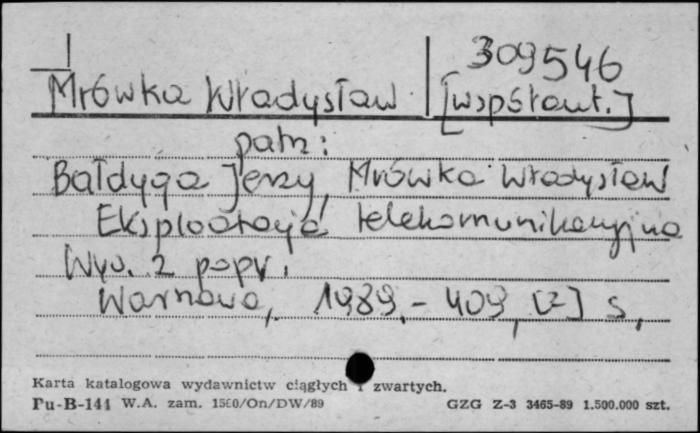 309546
Mrówka Władysław [współaut.]
patrz:
Bałdyga Jerzy, Mrówka Władysław
Eksploatacja telekomunikacyjna
Wyd. 2 popr.
Warszawa, 1989. - 409, [2] s.
Karta katalogowa wydawnictw ciągłych i zwartych.
Pu-B-144 W.A. zam. 1560/On/DW/89 GZG Z-3 3465-89 1.500.000 szt.